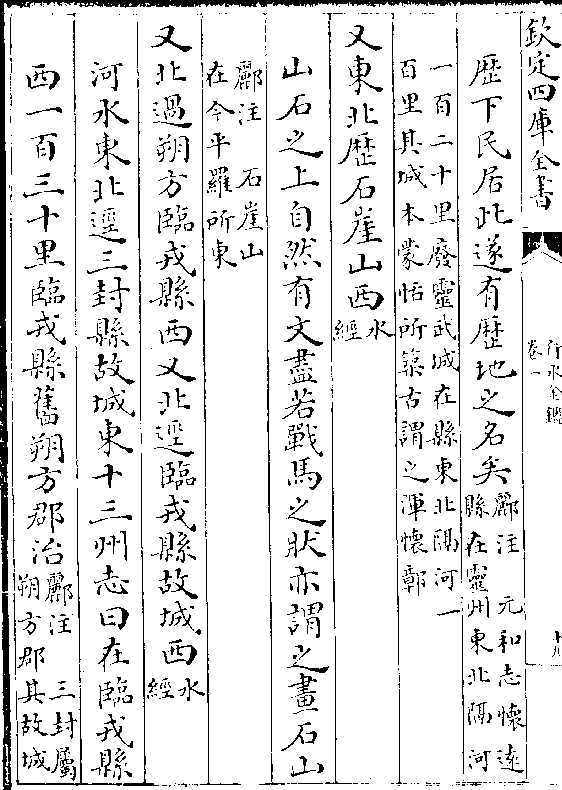 欽定四庫全書
行水金鑑
卷一
十九
歴下民居此遂有歴地之名矣
酈注　元和志懷遠
縣在靈州東北隔河
一百二十里廢靈武城在縣東北隔河一
百里其城本蒙恬所築古謂之渾懷鄣
又東北歴石崖山西
水
經
山石之上自然有文盡若戰馬之狀亦謂之畫石山
酈注　石崖山
在今平羅所東
又北過朔方臨戎縣西又北逕臨戎縣故城西
水
經
河水東北逕三封縣故城東十三州志曰在臨戎縣
西一百三十里臨戎縣舊朔方郡治
酈注　三封屬
朔方郡其故城